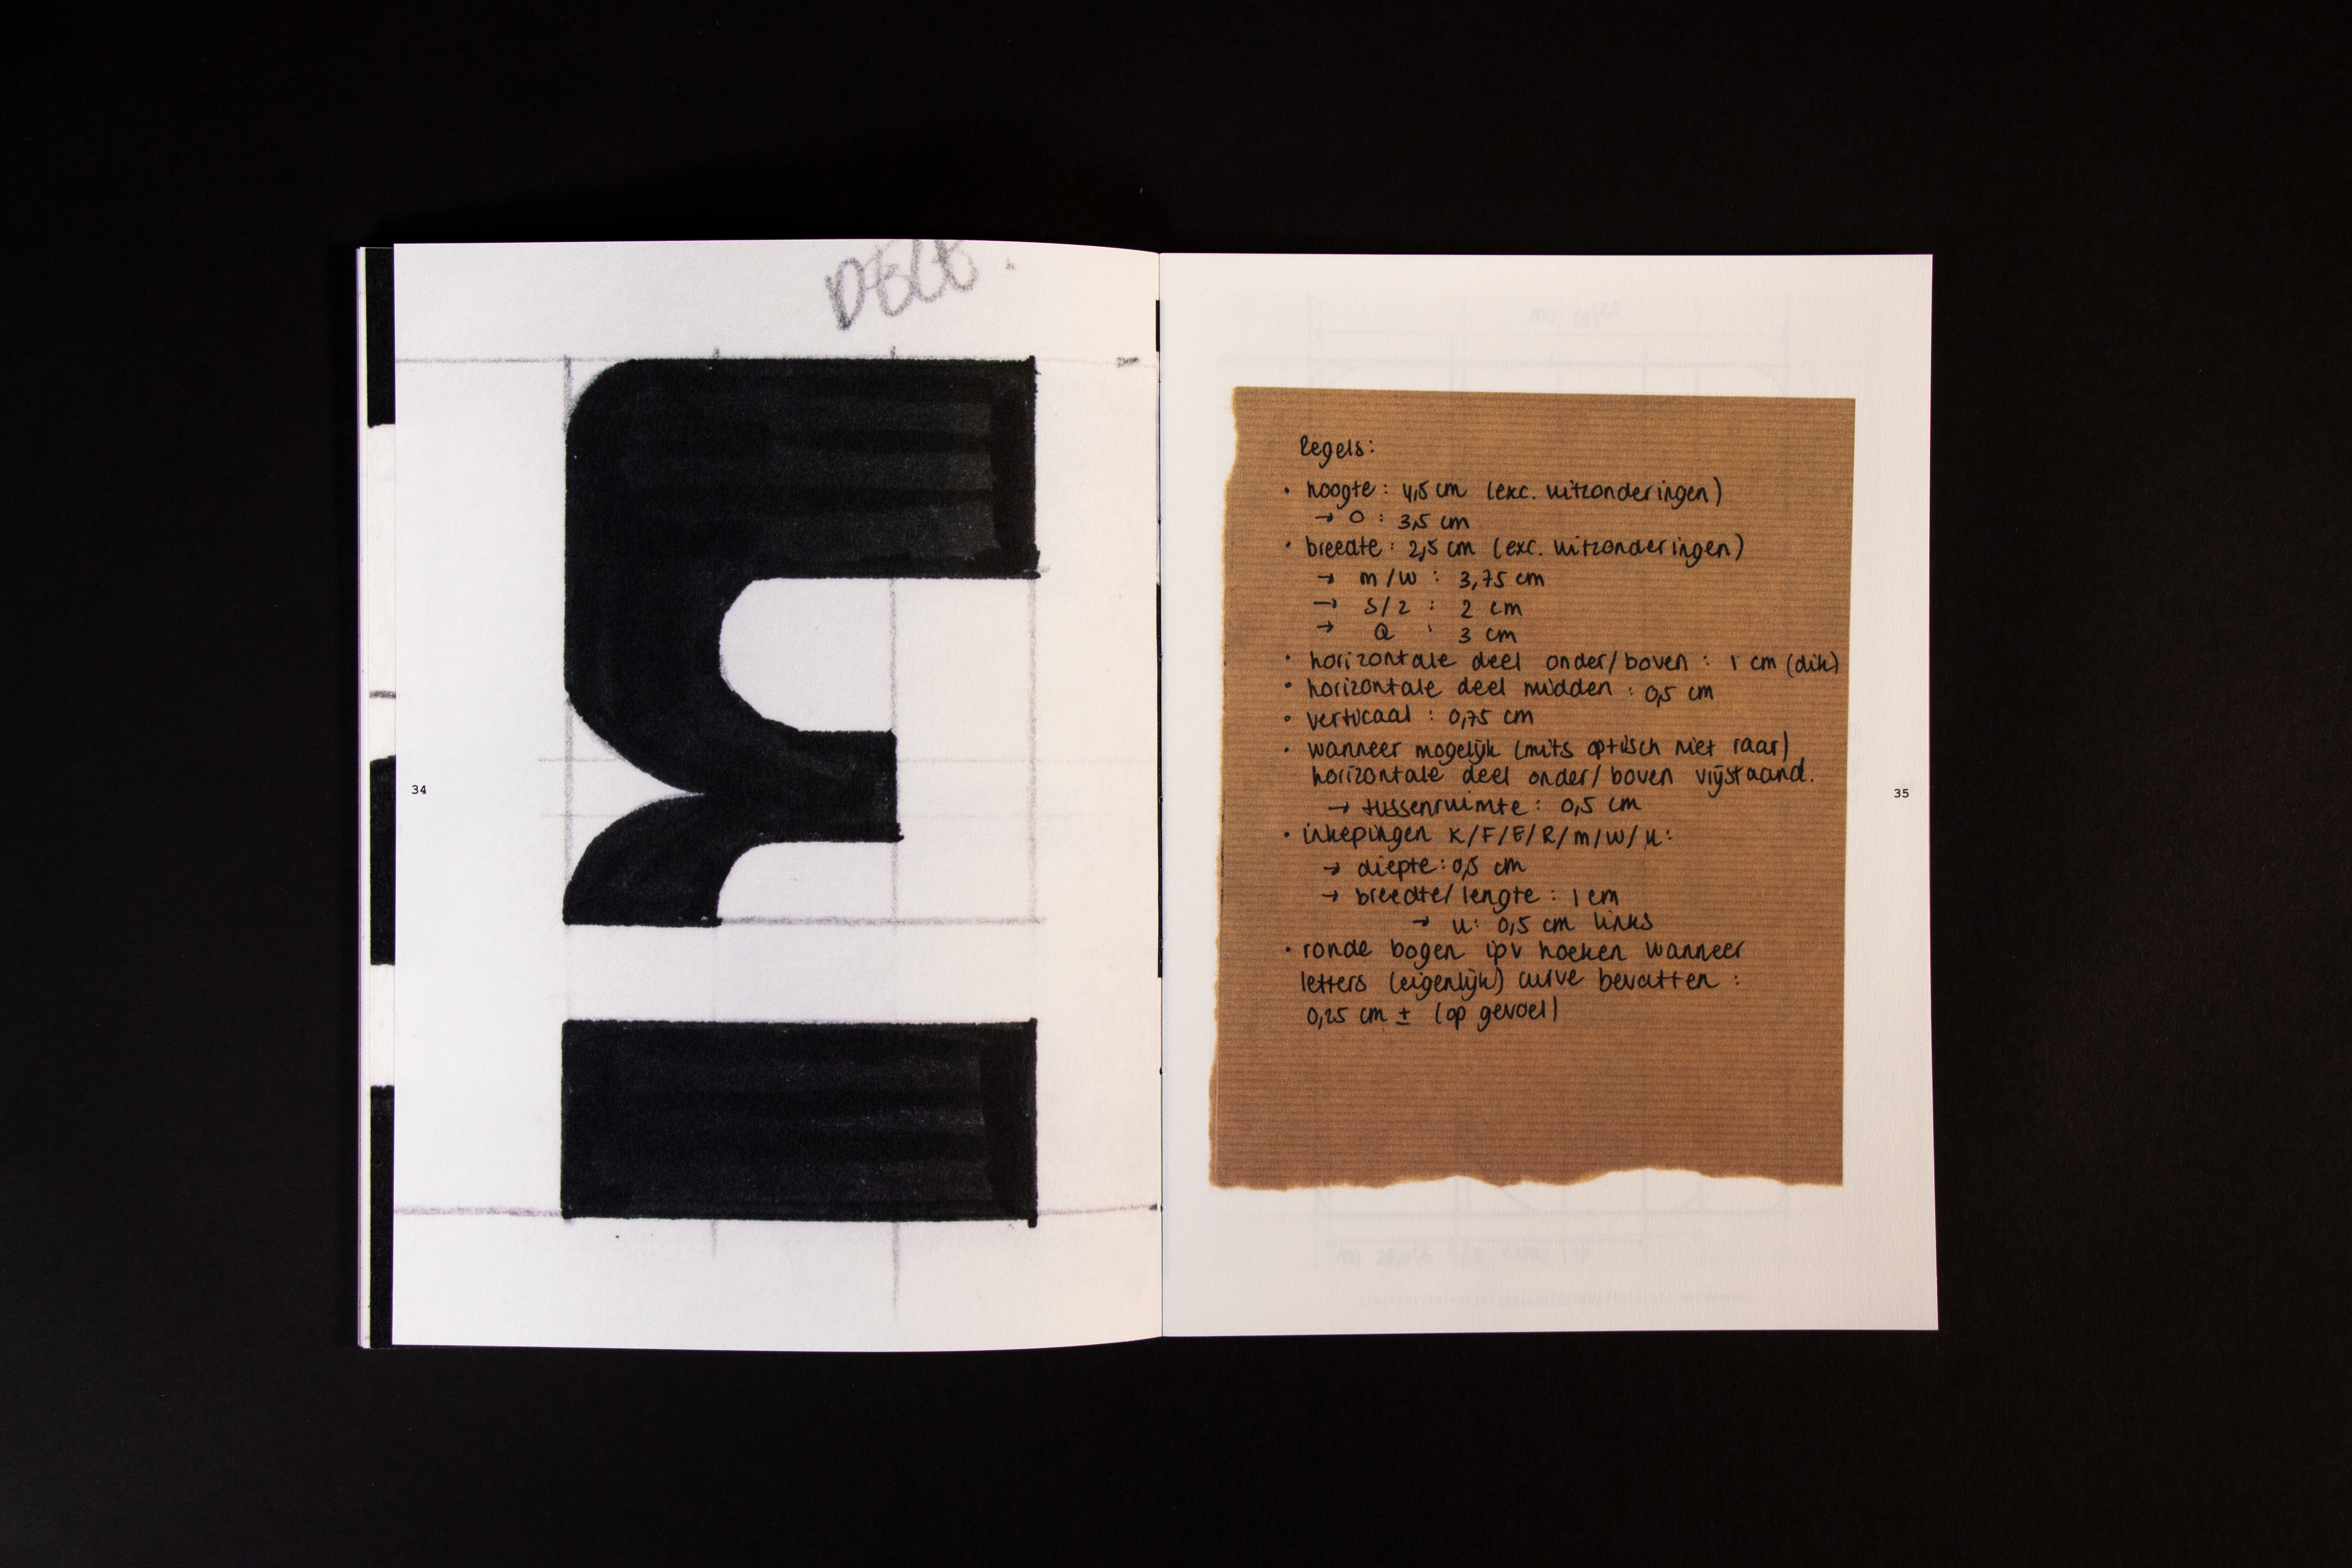 34
Regels:
• hoogte: 4,5 cm (exc. uitzonderingen)
→ O : 3,5 cm
• breedte: 2,5 cm (exc. uitzonderingen)
→ m/w : 3,75 cm
→ S/z : 2 cm
→ Q : 3 cm
• horizontale deel onder/boven : 1 cm (dik)
• horizontale deel midden : 0,5 cm
• verticaal : 0,75 cm
• wanneer mogelijk (mits optisch niet raar)
horizontale deel onder/boven vrijstaand.
→ tussenruimte : 0,5 cm
• inkepingen K/F/E/R/m/w/u:
→ diepte: 0,5 cm
→ breedte/lengte : 1 cm
→ u: 0,5 cm links
• ronde bogen ipv hoeken wanneer
letters (eigenlijk) curve bevatten :
0,25 cm ± (op gevoel)
35